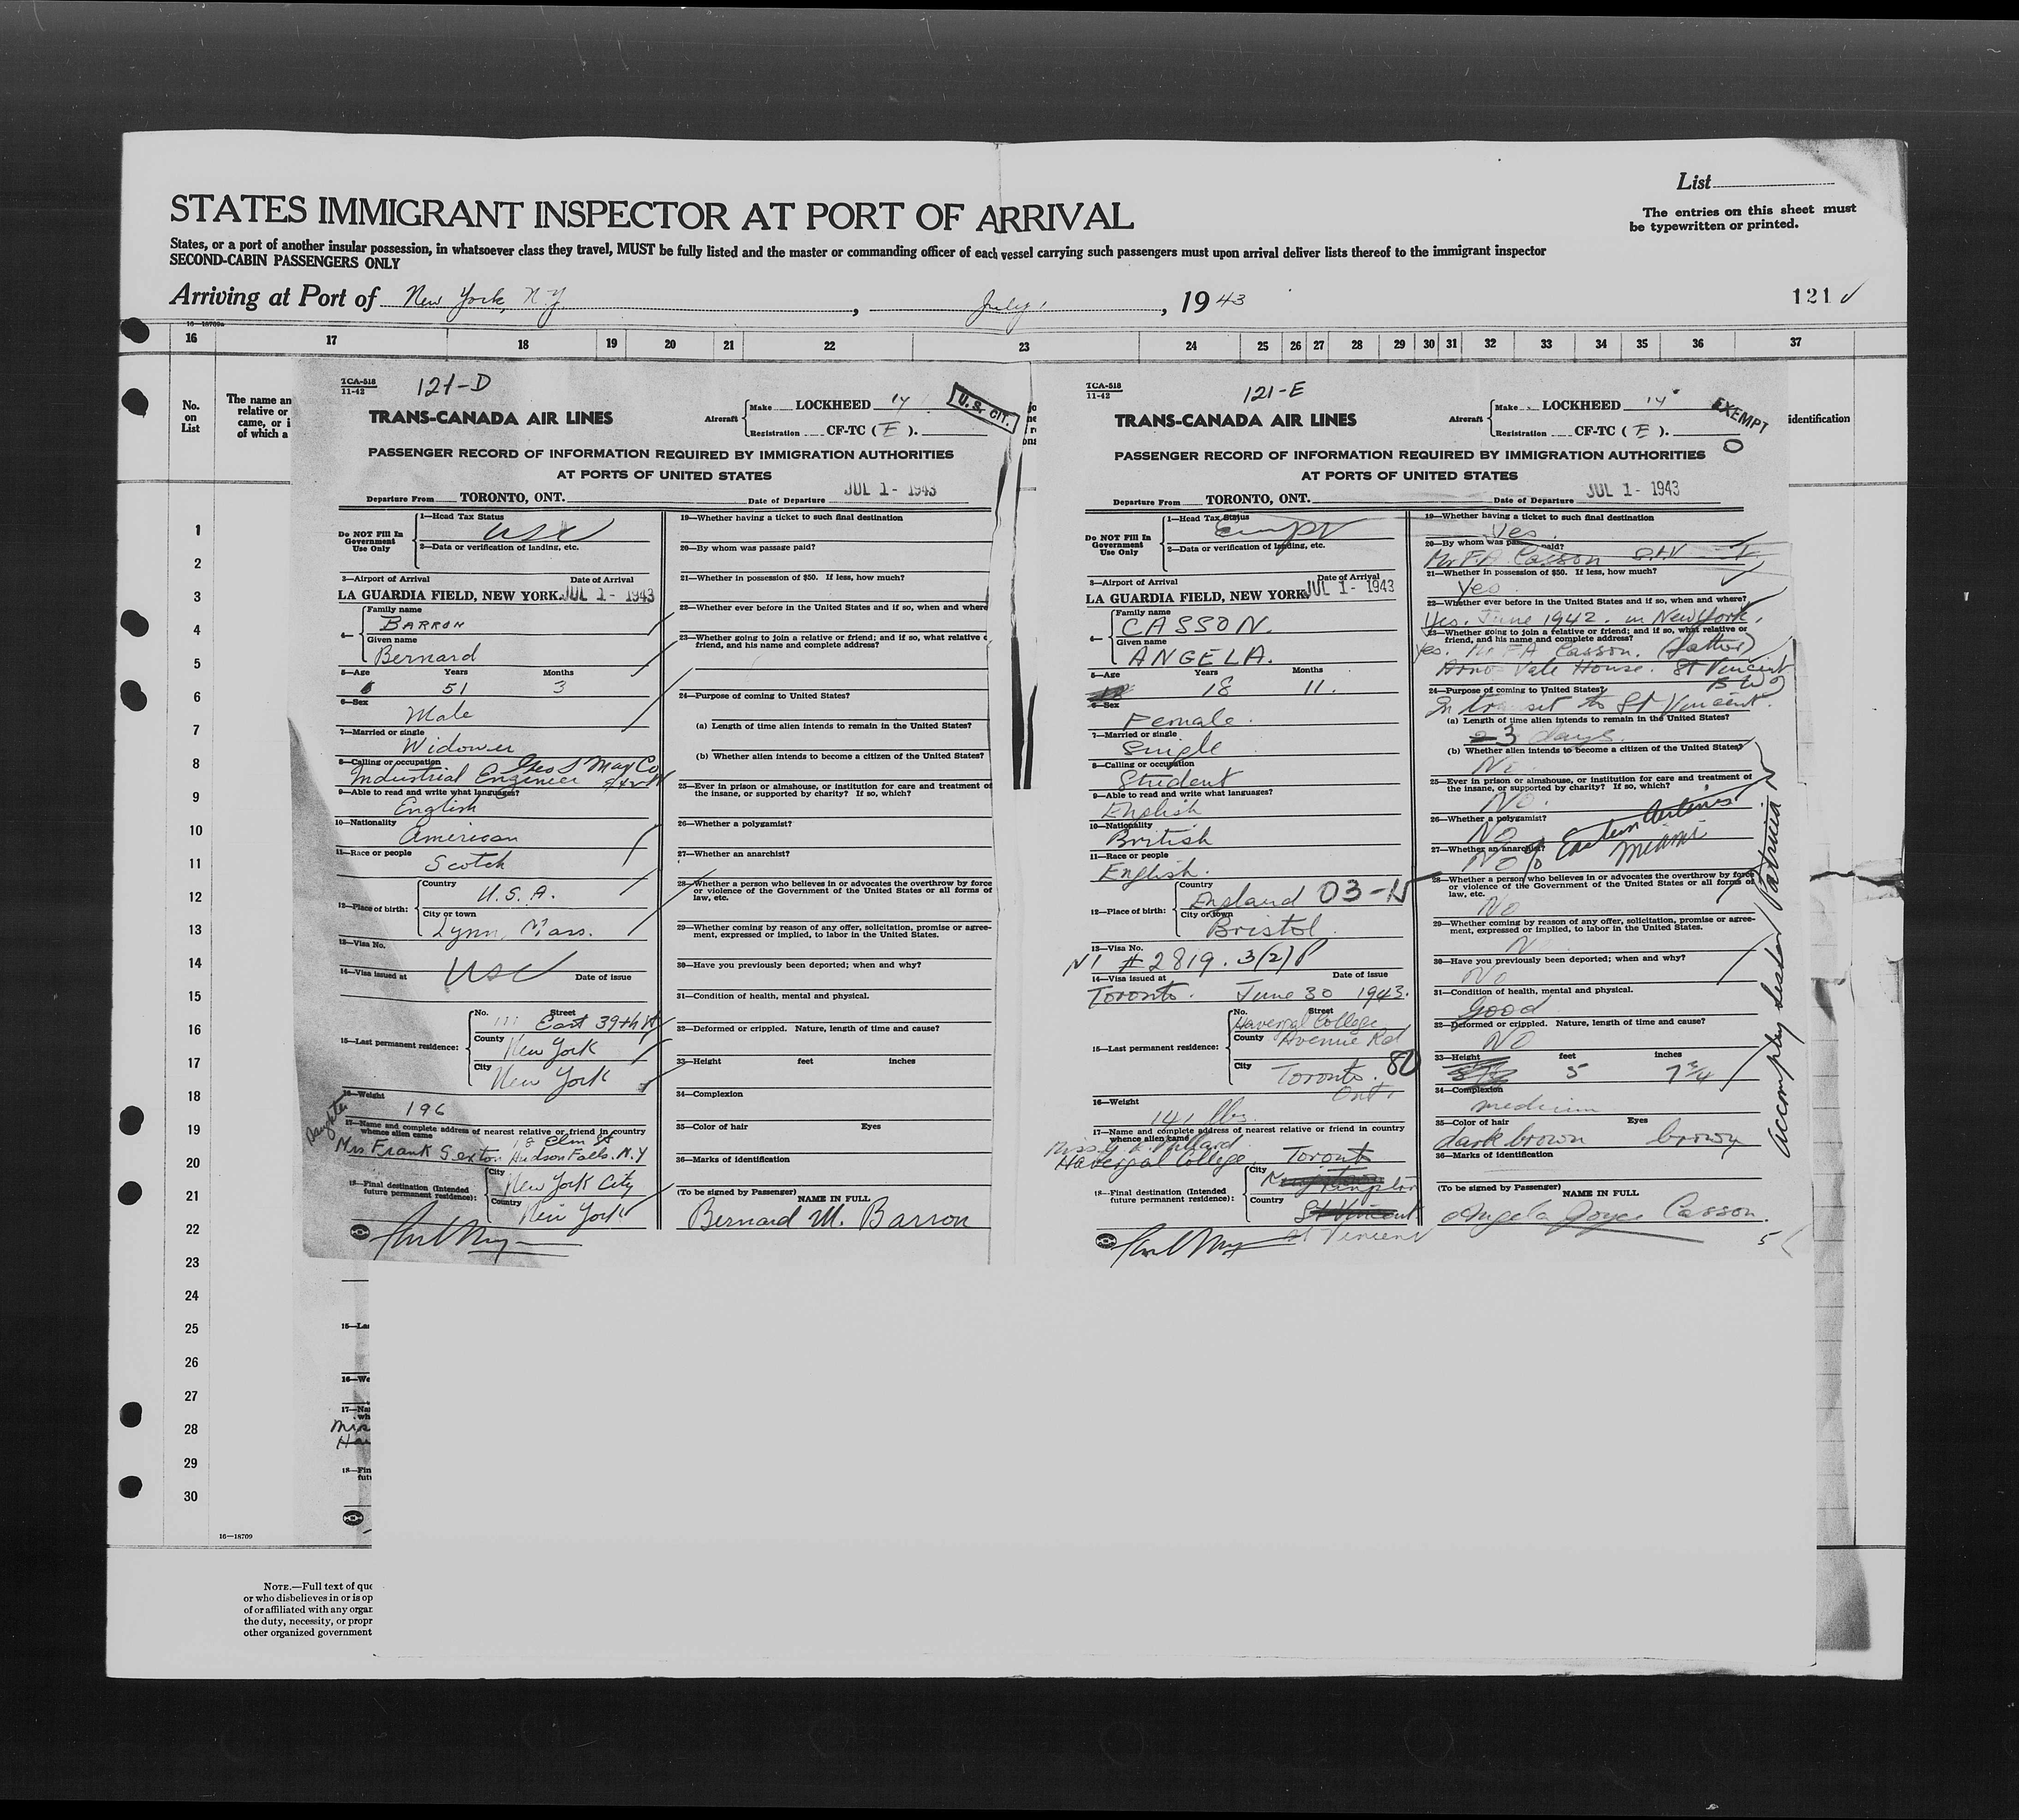 List
STATES IMMIGRANT INSPECTOR AT PORT OF ARRIVAL
The entries on this sheet must
be typewritten or printed.
States, or a port of another insular possession, in whatsoever class they travel, MUST be fully listed and the master or commanding officer of each vessel carrying such passengers must upon arrival deliver lists thereof to the immigrant inspector
SECOND-CABIN PASSENGERS ONLY
Arriving at Port of New York, N.Y. , July 1 , 19 43
121
16 17 18 19 20 21 22 23 24 25 26 27 28 29 30 31 32 33 34 35 36 37
No.
on
List
The name an
relative or
came, or i
of which a
identification
1
2
3
4
5
6
7
8
9
10
11
12
13
14
15
16
17
18
19
20
21
22
23
24
25
26
27
28
29
30
TCA-518
11-42
121-D
TRANS-CANADA AIR LINES
Aircraft Make LOCKHEED 14
Registration CF-TC ( E ).
U.S. CIT.
PASSENGER RECORD OF INFORMATION REQUIRED BY IMMIGRATION AUTHORITIES
AT PORTS OF UNITED STATES
Departure From TORONTO, ONT. Date of Departure JUL 1 - 1943
Do NOT Fill In
Government
Use Only
1—Head Tax Status
USC
2—Data or verification of landing, etc.
3—Airport of Arrival Date of Arrival
LA GUARDIA FIELD, NEW YORK. JUL 1 - 1943
4—
Family name
BARRON
Given name
Bernard
5—Age Years Months
51 3
6—Sex
Male
7—Married or single
Widower
8—Calling or occupation Geo S May Co
Industrial Engineer
9—Able to read and write what languages?
English
10—Nationality
American
11—Race or people
Scotch
12—Place of birth:
Country
U.S.A.
City or town
Lynn, Mass.
13—Visa No.
USC
14—Visa issued at Date of issue
15—Last permanent residence:
No. Street
East 39th St
County
New York
City
New York
16—Weight
196
17—Name and complete address of nearest relative or friend in country
whence alien came
Daughter
18 Elm St
Mrs Frank Sexton Hudson Falls. N.Y
18—Final destination (Intended
future permanent residence):
City
New York City
Country
New York
19—Whether having a ticket to such final destination
20—By whom was passage paid?
21—Whether in possession of $50. If less, how much?
22—Whether ever before in the United States and if so, when and where
23—Whether going to join a relative or friend; and if so, what relative o
friend, and his name and complete address?
24—Purpose of coming to United States?
(a) Length of time alien intends to remain in the United States?
(b) Whether alien intends to become a citizen of the United States?
25—Ever in prison or almshouse, or institution for care and treatment of
the insane, or supported by charity? If so, which?
26—Whether a polygamist?
27—Whether an anarchist?
28—Whether a person who believes in or advocates the overthrow by force
or violence of the Government of the United States or all forms of
law, etc.
29—Whether coming by reason of any offer, solicitation, promise or agree-
ment, expressed or implied, to labor in the United States.
30—Have you previously been deported; when and why?
31—Condition of health, mental and physical.
32—Deformed or crippled. Nature, length of time and cause?
33—Height feet inches
34—Complexion
35—Color of hair Eyes
36—Marks of identification
(To be signed by Passenger) NAME IN FULL
Bernard M. Barron
TCA-518
11-42
121-E
TRANS-CANADA AIR LINES
Aircraft Make LOCKHEED 14
Registration CF-TC ( E ).
EXEMPT
PASSENGER RECORD OF INFORMATION REQUIRED BY IMMIGRATION AUTHORITIES
AT PORTS OF UNITED STATES
Departure From TORONTO, ONT. Date of Departure JUL 1 - 1943
Do NOT Fill In
Government
Use Only
1—Head Tax Status
2—Data or verification of landing, etc.
3—Airport of Arrival Date of Arrival
LA GUARDIA FIELD, NEW YORK. JUL 1 - 1943
4—
Family name
CASSON.
Given name
ANGELA.
5—Age Years Months
18 11.
6—Sex
Female.
7—Married or single
Single
8—Calling or occupation
Student
9—Able to read and write what languages?
English
10—Nationality
British
11—Race or people
English.
12—Place of birth:
Country
England 03-N
City or town
Bristol.
13—Visa No.
#2819. 3(2)P
14—Visa issued at Date of issue
Toronto. June 30 1943.
15—Last permanent residence:
No. Street
Havergal College
County Avenue Rd
City Toronto. 80
Ont.
16—Weight
141 lbs.
17—Name and complete address of nearest relative or friend in country
whence alien came
Havergal College. Toronto
18—Final destination (Intended
future permanent residence):
City
Country
St Vincent
St Vincent
19—Whether having a ticket to such final destination
Yes.
20—By whom was passage paid?
Mr F.A Casson
21—Whether in possession of $50. If less, how much?
Yes
22—Whether ever before in the United States and if so, when and where?
Yes. June 1942. in New York.
23—Whether going to join a relative or friend; and if so, what relative or
friend, and his name and complete address?
Yes. Mr FA Casson. (father)
Arnos Vale House. St Vincent
B W I
24—Purpose of coming to United States?
In transit to St Vincent.
(a) Length of time alien intends to remain in the United States?
3 days.
(b) Whether alien intends to become a citizen of the United States?
No
25—Ever in prison or almshouse, or institution for care and treatment of
the insane, or supported by charity? If so, which?
No.
26—Whether a polygamist?
No
27—Whether an anarchist?
No
% Eastern Airlines
Miami
28—Whether a person who believes in or advocates the overthrow by force
or violence of the Government of the United States or all forms of
law, etc.
No
29—Whether coming by reason of any offer, solicitation, promise or agree-
ment, expressed or implied, to labor in the United States.
No
30—Have you previously been deported; when and why?
No
31—Condition of health, mental and physical.
Good
32—Deformed or crippled. Nature, length of time and cause?
No
33—Height feet inches
5 7 3/4
34—Complexion
medium
35—Color of hair Eyes
dark brown brown
36—Marks of identification
(To be signed by Passenger) NAME IN FULL
Angela Joyce Casson.
5
Accompby sister Patricia
15—La
16—We
17—Na
wh
Mis
Ha
18—Fin
futu
16—18709
NOTE.—Full text of que
or who disbelieves in or is op
of or affiliated with any organ
the duty, necessity, or propr
other organized government